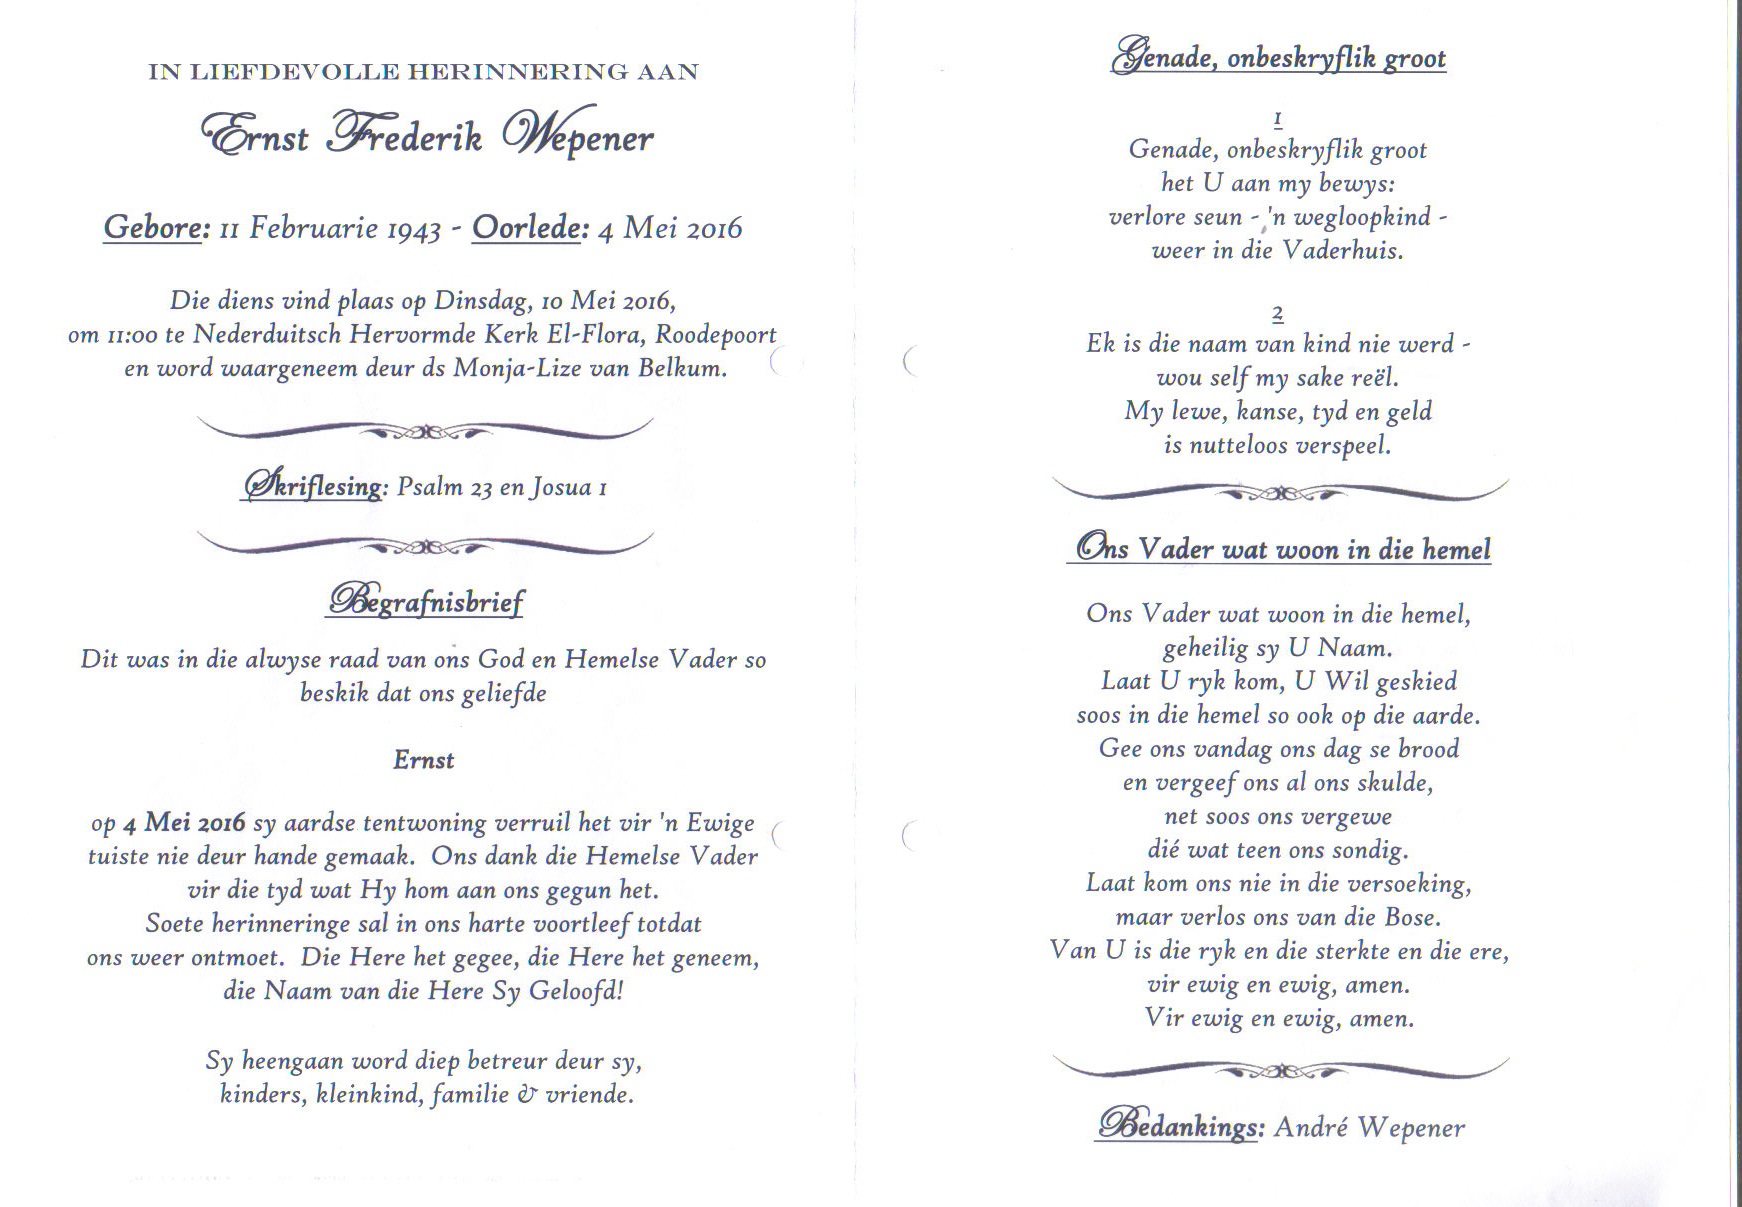 IN LIEFDEVOLLE HERINNERING AAN
Ernst Frederik Wepener
Gebore: 11 Februarie 1943 - Oorlede: 4 Mei 2016
Die diens vind plaas op Dinsdag, 10 Mei 2016,
om 11:00 te Nederduitsch Hervormde Kerk El-Flora, Roodepoort
en word waargeneem deur ds Monja-Lize van Belkum.
Skriflesing: Psalm 23 en Josua 1
Begrafnisbrief
Dit was in die alwyse raad van ons God en Hemelse Vader so
beskik dat ons geliefde
Ernst
op 4 Mei 2016 sy aardse tentwoning verruil het vir 'n Ewige
tuiste nie deur hande gemaak. Ons dank die Hemelse Vader
vir die tyd wat Hy hom aan ons gegun het.
Soete herinneringe sal in ons harte voortleef totdat
ons weer ontmoet. Die Here het gegee, die Here het geneem,
die Naam van die Here Sy Geloofd!
Sy heengaan word diep betreur deur sy,
kinders, kleinkind, familie & vriende.
Genade, onbeskryflik groot
1
Genade, onbeskryflik groot
het U aan my bewys:
verlore seun - 'n wegloopkind -
weer in die Vaderhuis.
2
Ek is die naam van kind nie werd -
wou self my sake reël.
My lewe, kanse, tyd en geld
is nutteloos verspeel.
Ons Vader wat woon in die hemel
Ons Vader wat woon in die hemel,
geheilig sy U Naam.
Laat U ryk kom, U Wil geskied
soos in die hemel so ook op die aarde.
Gee ons vandag ons dag se brood
en vergeef ons al ons skulde,
net soos ons vergewe
dié wat teen ons sondig.
Laat kom ons nie in die versoeking,
maar verlos ons van die Bose.
Van U is die ryk en die sterkte en die ere,
vir ewig en ewig, amen.
Vir ewig en ewig, amen.
Bedankings: André Wepener